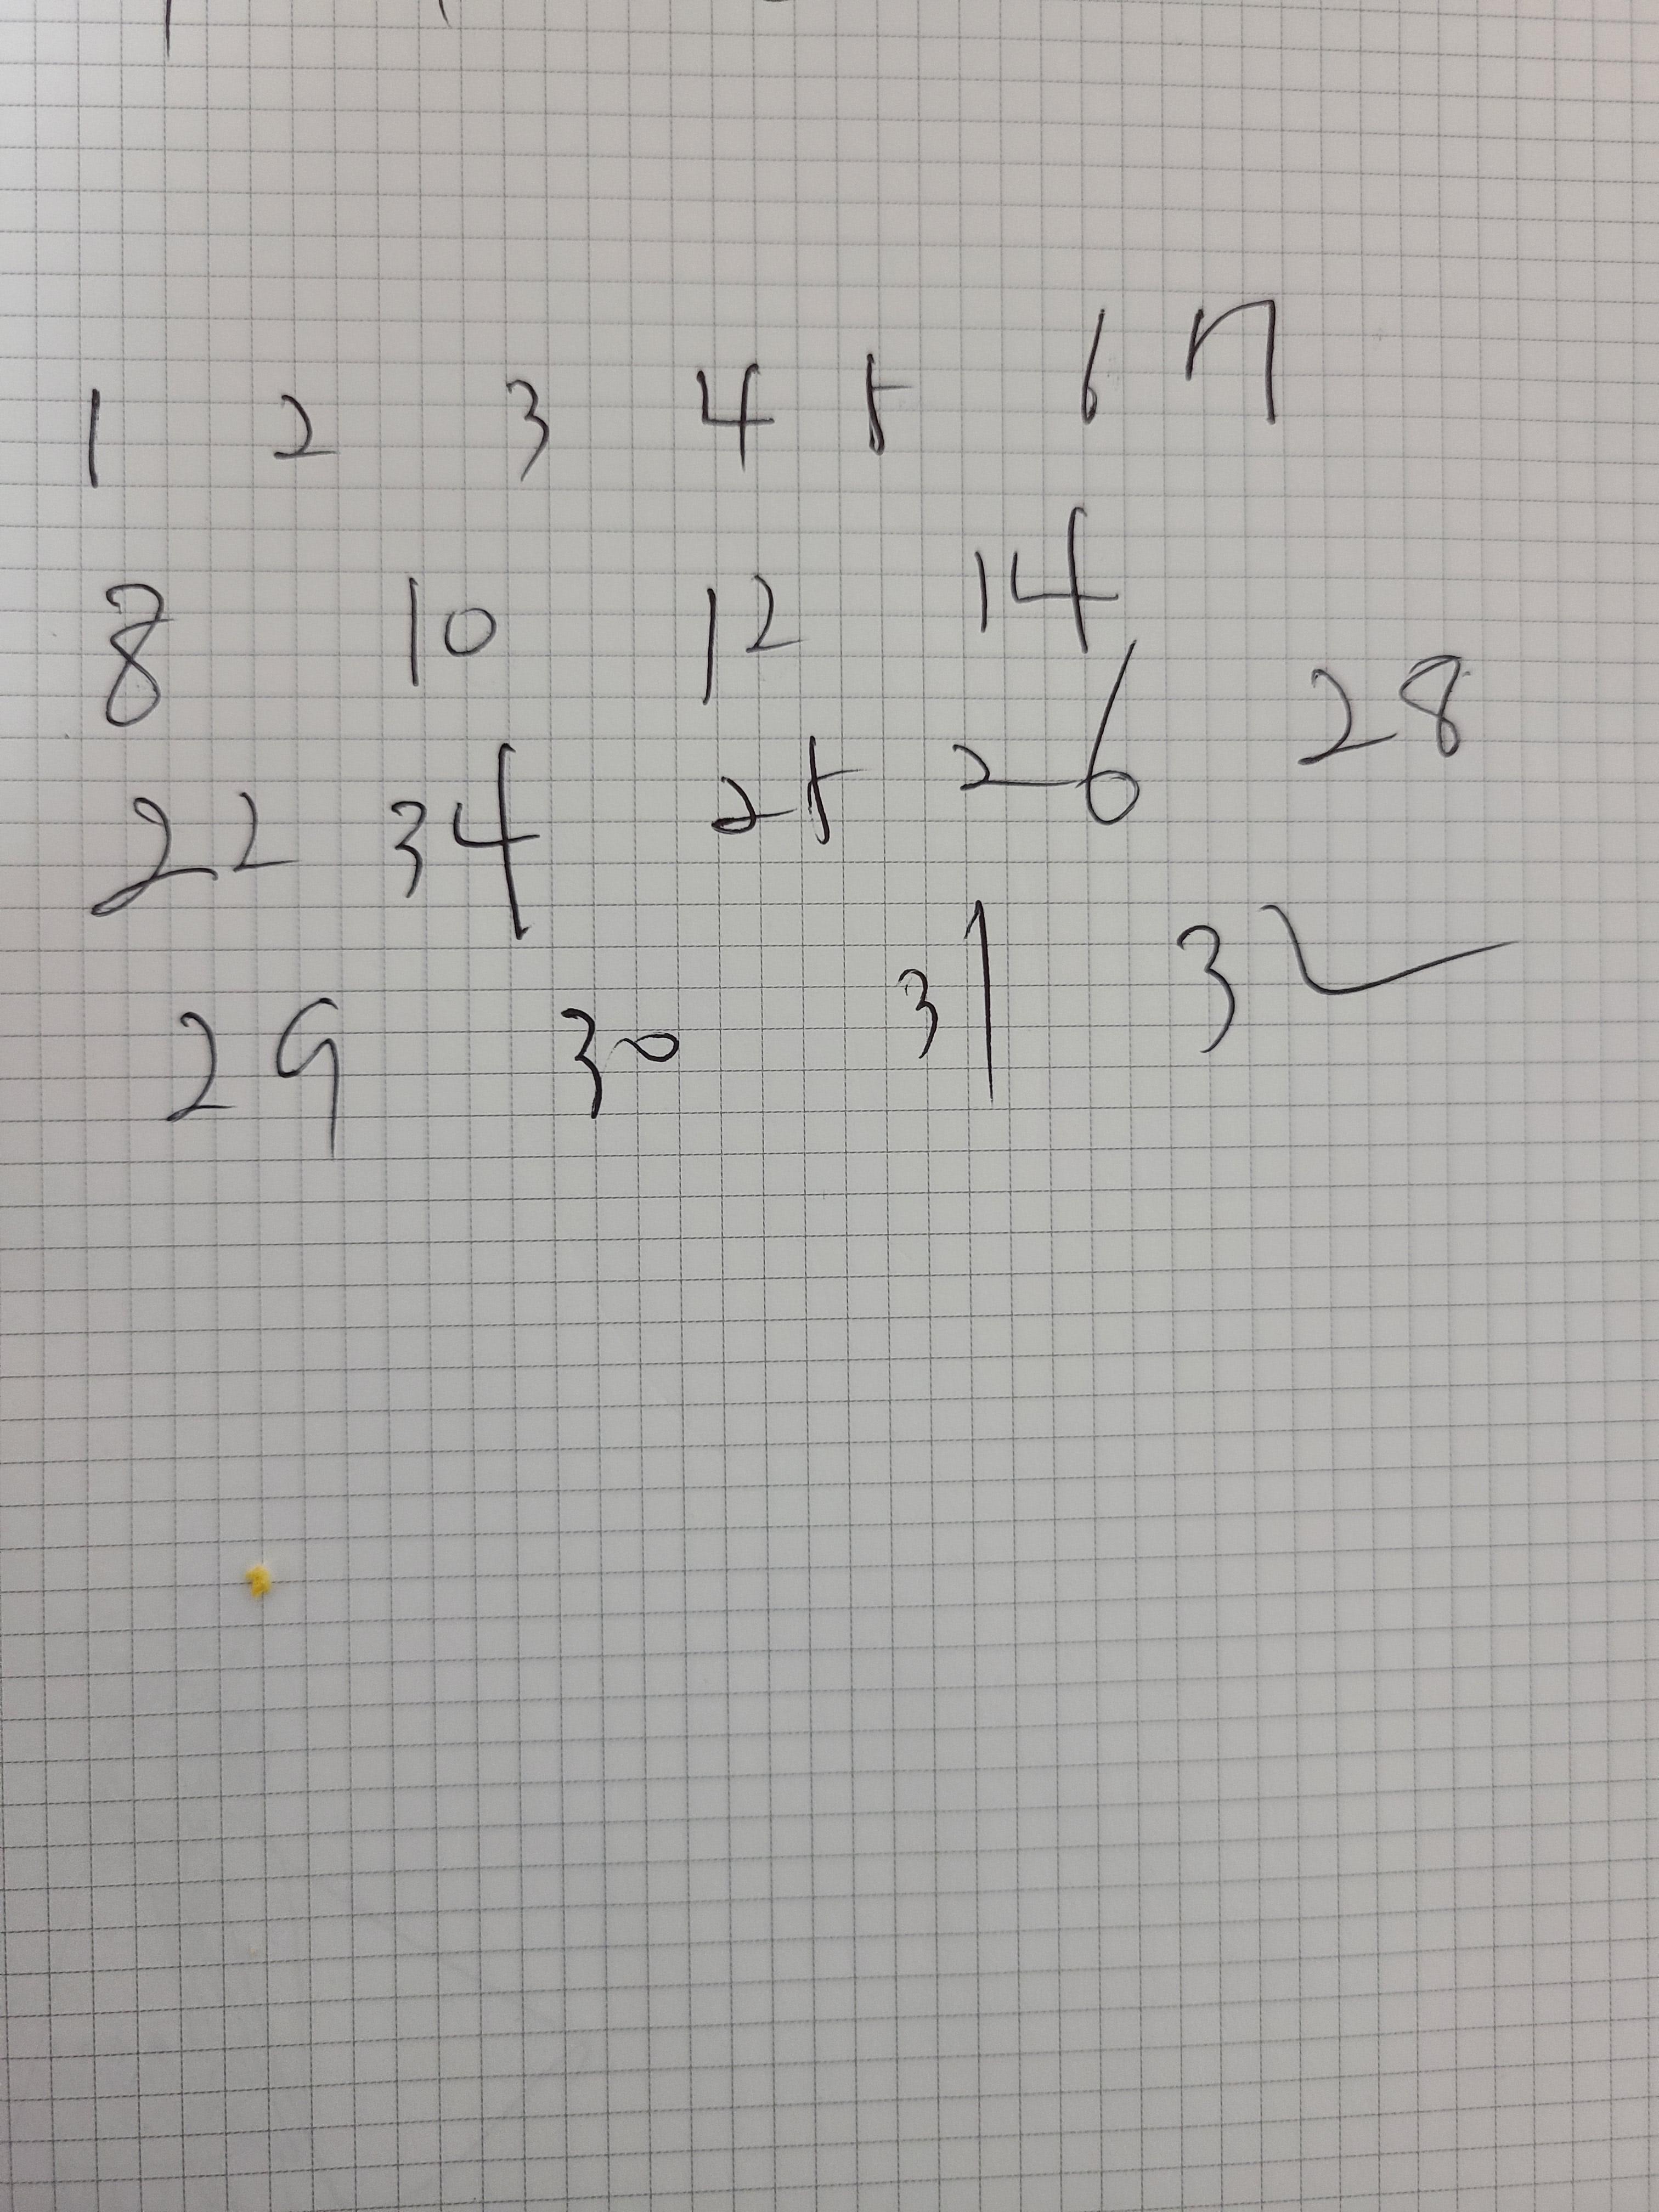 1 2 3 4 5 6 7
8 10 12 14
22 34 25 26 28
29 30 31 32